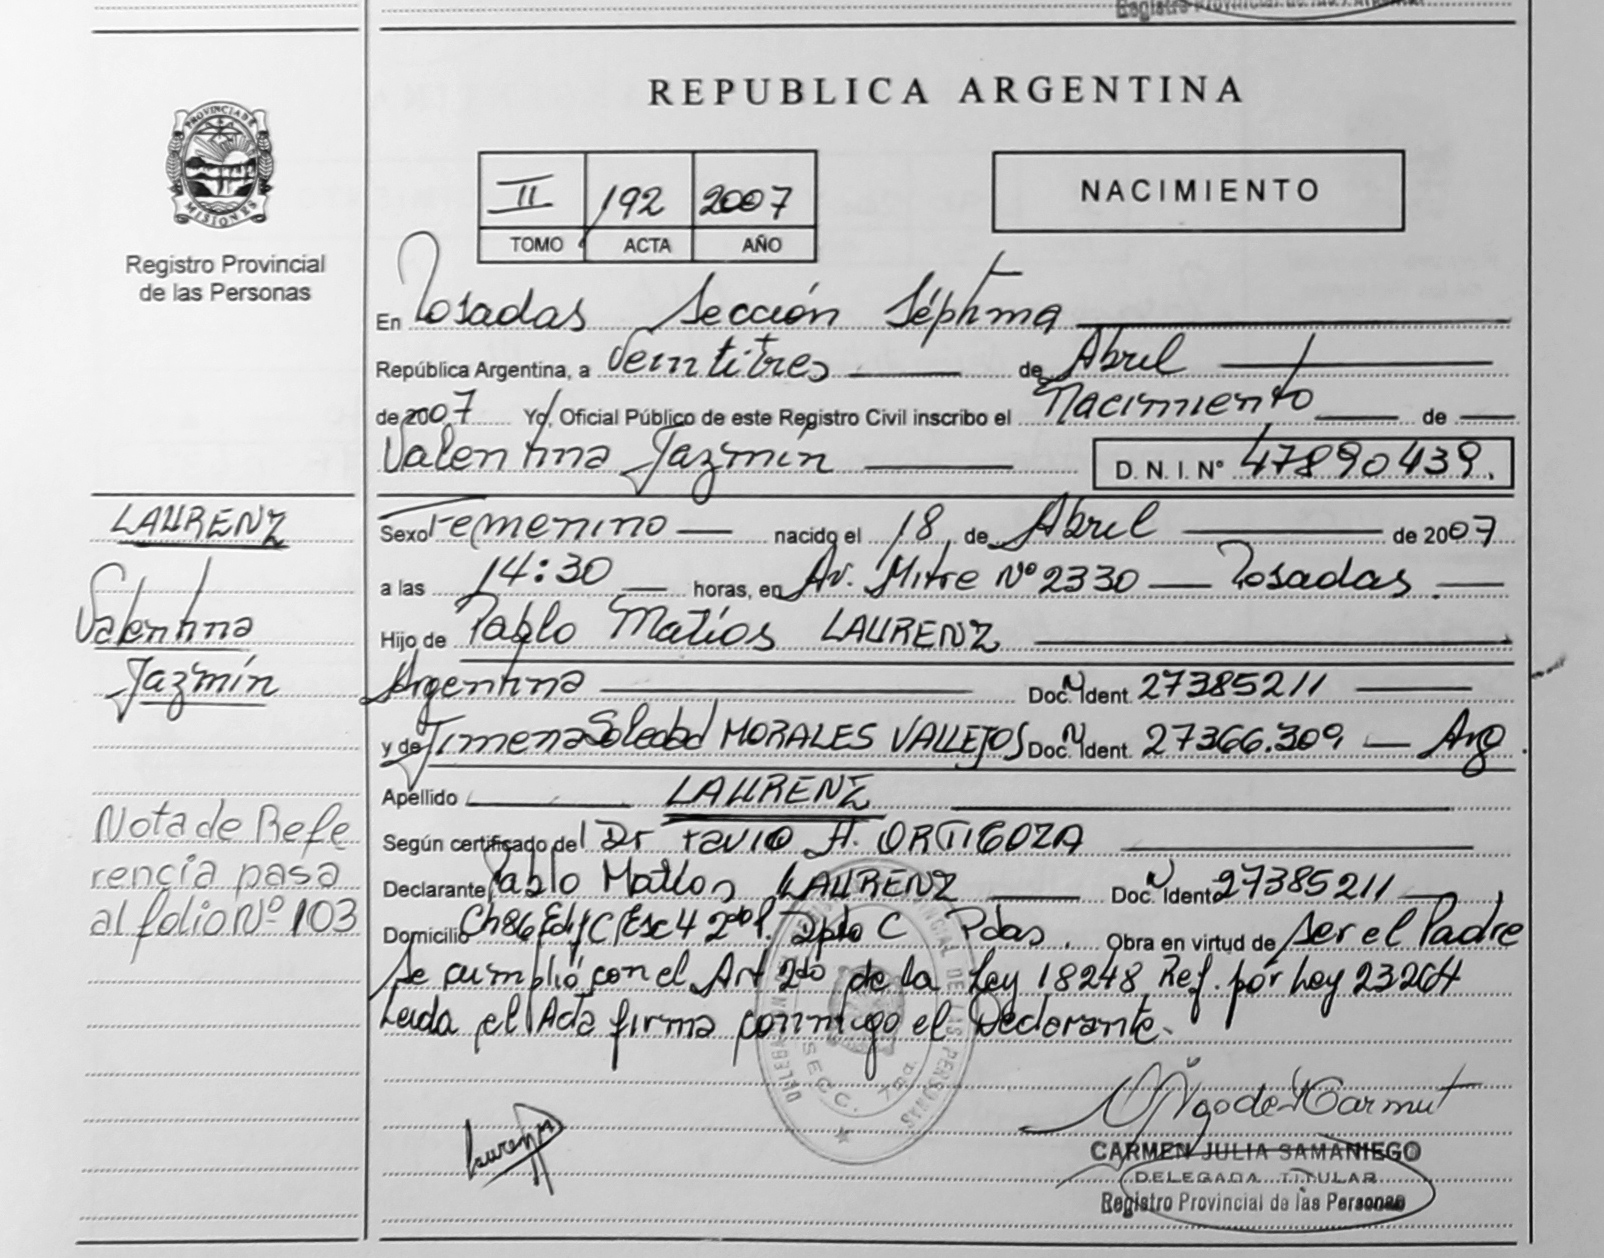 REPUBLICA ARGENTINA
PROVINCIA DE MISIONES
Registro Provincial
de las Personas
II 192 2007
TOMO ACTA AÑO
NACIMIENTO
En Posadas Sección Séptima
República Argentina, a Veintitres de Abril
de 2007 Yo, Oficial Público de este Registro Civil inscribo el Nacimiento de
Valentina Jazmín D. N. I. Nº 47890439.
LAURENZ
Valentina
Jazmín
Sexo Femenino nacido el 18 de Abril de 2007
a las 14:30 horas, en Av. Mitre Nº 2330 Posadas.
Hijo de Pablo Matías LAURENZ
Argentina Doc. Ident. 27385211
y de Jimena Soledad MORALES VALLEJOS Doc. Ident. 27366.309 Arg.
Apellido LAURENZ
Según certificado del Dr Favio A. ORTIGOZA
Declarante Pablo Matías LAURENZ Doc. Ident. 27385211
Domicilio Ch86 Edif C Esc 4 2do P. Dpto C Pdas. Obra en virtud de ser el Padre
Se cumplió con el Art 2do de la Ley 18248 Ref. por Ley 23264
Leida el Acta firma conmigo el Declarante.
Nota de Refe
rencia pasa
al folio Nº 103
Laurenz
CARMEN JULIA SAMANIEGO
DELEGADA TITULAR
Registro Provincial de las Personas
SECC. 7ma.